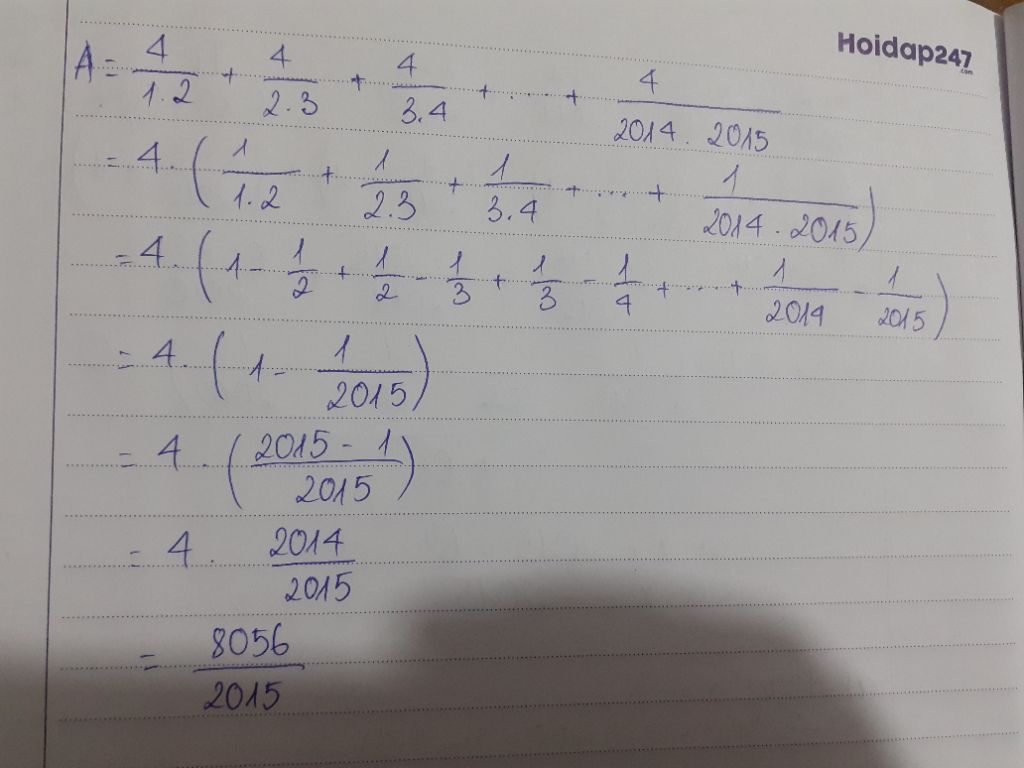 Hoidap247.com
A = 4/1.2 + 4/2.3 + 4/3.4 + ... + 4/2014.2015
= 4.(1/1.2 + 1/2.3 + 1/3.4 + ... + 1/2014.2015)
= 4.(1 - 1/2 + 1/2 - 1/3 + 1/3 - 1/4 + ... + 1/2014 - 1/2015)
= 4.(1 - 1/2015)
= 4.(2015 - 1/2015)
= 4. 2014/2015
= 8056/2015